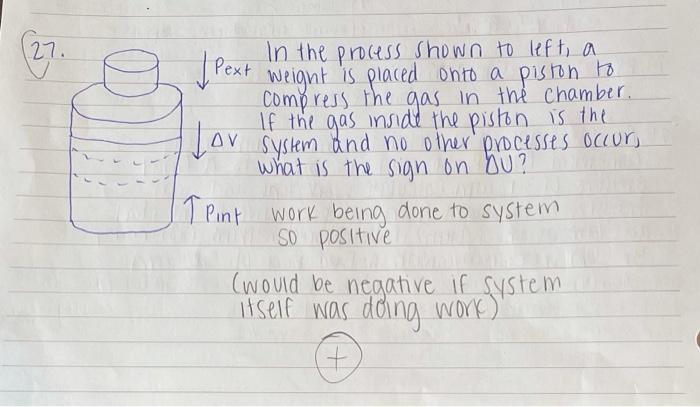 27.
In the process shown to left, a
↓ Pext weight is placed onto a piston to
compress the gas in the chamber.
If the gas inside the piston is the
↓ ΔV system and no other processes occur,
what is the sign on ΔU?
↑ Pint work being done to system
so positive
(would be negative if system
itself was doing work)
+